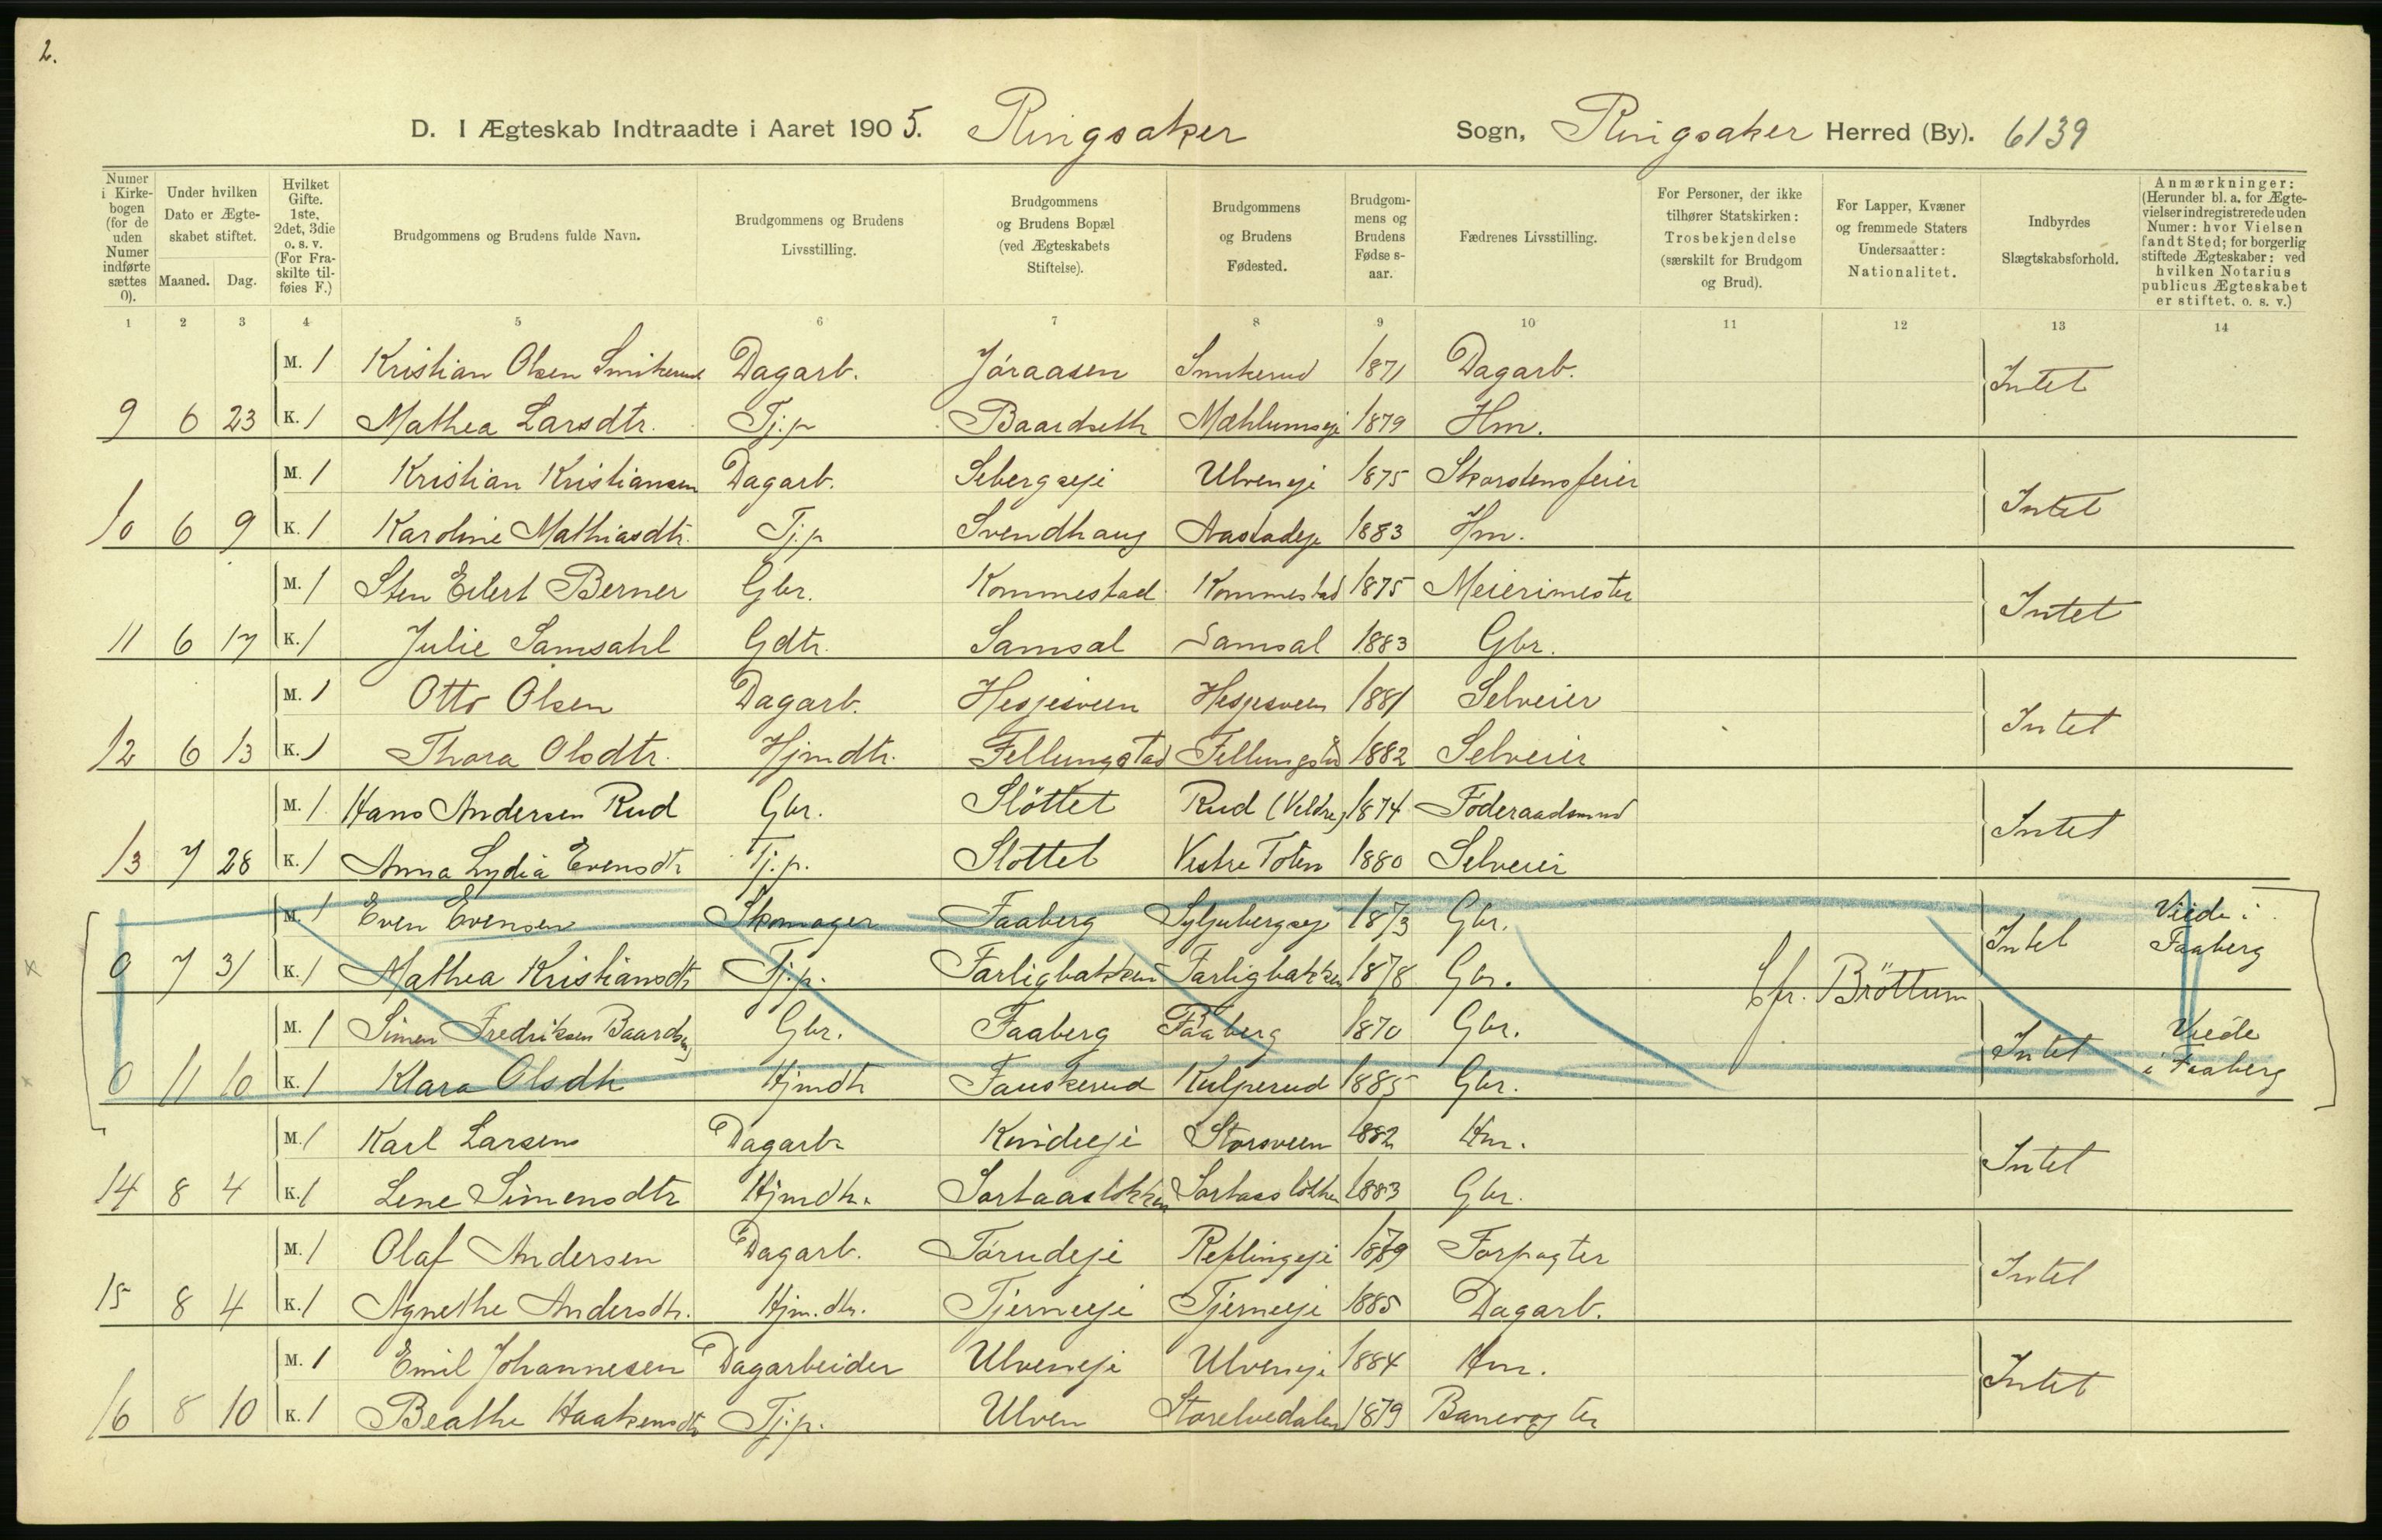 2.
D. I Ægteskab Indtraadte i Aaret 1905. Ringsaker Sogn, Ringsaker Herred (By). 6139
Numer i Kirkebogen (for de uden Numer indførte sættes 0).
Under hvilken Dato er Ægteskabet stiftet.
Maaned. Dag.
Hvilket Gifte. 1ste, 2det, 3die o. s. v. (For Fraskilte tilføies F.)
Brudgommens og Brudens fulde Navn.
Brudgommens og Brudens Livsstilling.
Brudgommens og Brudens Bopæl (ved Ægteskabets Stiftelse).
Brudgommens og Brudens Fødested.
Brudgommens og Brudens Fødse s-aar.
Fædrenes Livsstilling.
For Personer, der ikke tilhører Statskirken: Trosbekjendelse (særskilt for Brudgom og Brud).
For Lapper, Kvæner og fremmede Staters Undersaatter: Nationalitet.
Indbyrdes Slægtskabsforhold.
Anmærkninger: (Herunder bl. a. for Ægtevielser indregistrerede uden Numer: hvor Vielsen fandt Sted; for borgerlig stiftede Ægteskaber: ved hvilken Notarius publicus Ægteskabet er stiftet, o. s. v.)
1 2 3 4 5 6 7 8 9 10 11 12 13 14
M. 1 Kristian Olsen Smikerud Dagarb. Jøraasen Smikerud 1871 Dagarb. Intet
9 6 23 K. 1 Mathea Larsdtr. Tj.p Baardseth Mæhlumseje 1879 Hm.
M. 1 Kristian Kristiansen Dagarb. Sebergseje Ulveneje 1875 Skorstensfeier Intet
10 6 9 K. 1 Karoline Mathiasdtr. Tj.p Svendhaug Aastadeje 1883 Hm.
M. 1 Sten Eilert Berner Gbr. Kommestad Kommestad 1875 Meierimester Intet
11 6 17 K. 1 Julie Samsahl Gdtr. Samsal Samsal 1883 Gbr.
M. 1 Otto Olsen Dagarb. Hesjesveen Hesjesveen 1881 Selveier Intet
12 6 13 K. 1 Thora Olsdtr. Hjmdtr. Fellungstad Fellungstad 1882 Selveier
M. 1 Hans Andersen Rud Gbr. Slöttet Rud (Veldre) 1874 Föderaadsmand Intet
13 7 28 K. 1 Anna Lydia Evensdtr Tj.p. Slottet Vestre Toten 1880 Selveier
M. 1 Even Evensen Skomager Faaberg Syljubergseje 1873 Gbr. Intet Viede i Faaberg
0 7 31 K. 1 Mathea Kristiansdtr Tj.p. Farligbakken Farligbakken 1878 Gbr.
Cfr. Bröttum
M. 1 Simen Fredriksen Baardseng Gbr. Faaberg Faaberg 1870 Gbr. Intet Viede i Faaberg
0 11 10 K. 1 Klara Olsdtr Hjmdtr Fauskerud Kulperud 1885 Gbr.
M. 1 Karl Larsen Dagarb. Storsveen 1882 Hm. Intet
14 8 4 K. 1 Lene Simensdtr Hjmdtr. Sortaaslökken Sortaaslökken 1883 Gbr.
M. 1 Olaf Andersen Dagarb. Törudeje Reflingeje 1879 Forpagter Intet
15 8 4 K. 1 Agnethe Andersdtr. Hjm.dtr. Tjerneeje Tjerneeje 1885 Dagarb.
M. 1 Emil Johannesen Dagarbeider Ulveneje Ulveneje 1884 Hm. Intet
16 8 10 K. 1 Beathe Haakensdtr Tj.p. Ulven Storelvedalen 1879 Banevogter